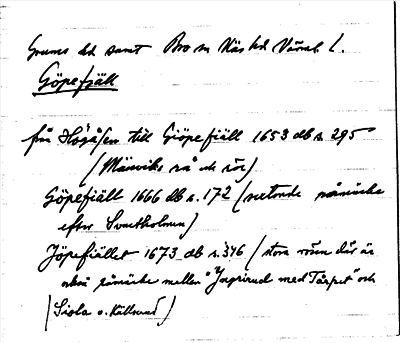 Grums hd samt Bro sn Näs hd Värml l.
Göpefjäll
från Högåsen till Giöpefiäll 1653 db s. 295
(Mänviks rå och rör)
Göpefiällt 1666 db s. 172 (vextonde råmärke
efter Svartholmen)
Jöpefiället 1673 db s. 346 (stora rören där är
också råmärke mellen "Jngrirud med Tårpet" och
(Siola o. Källsund)